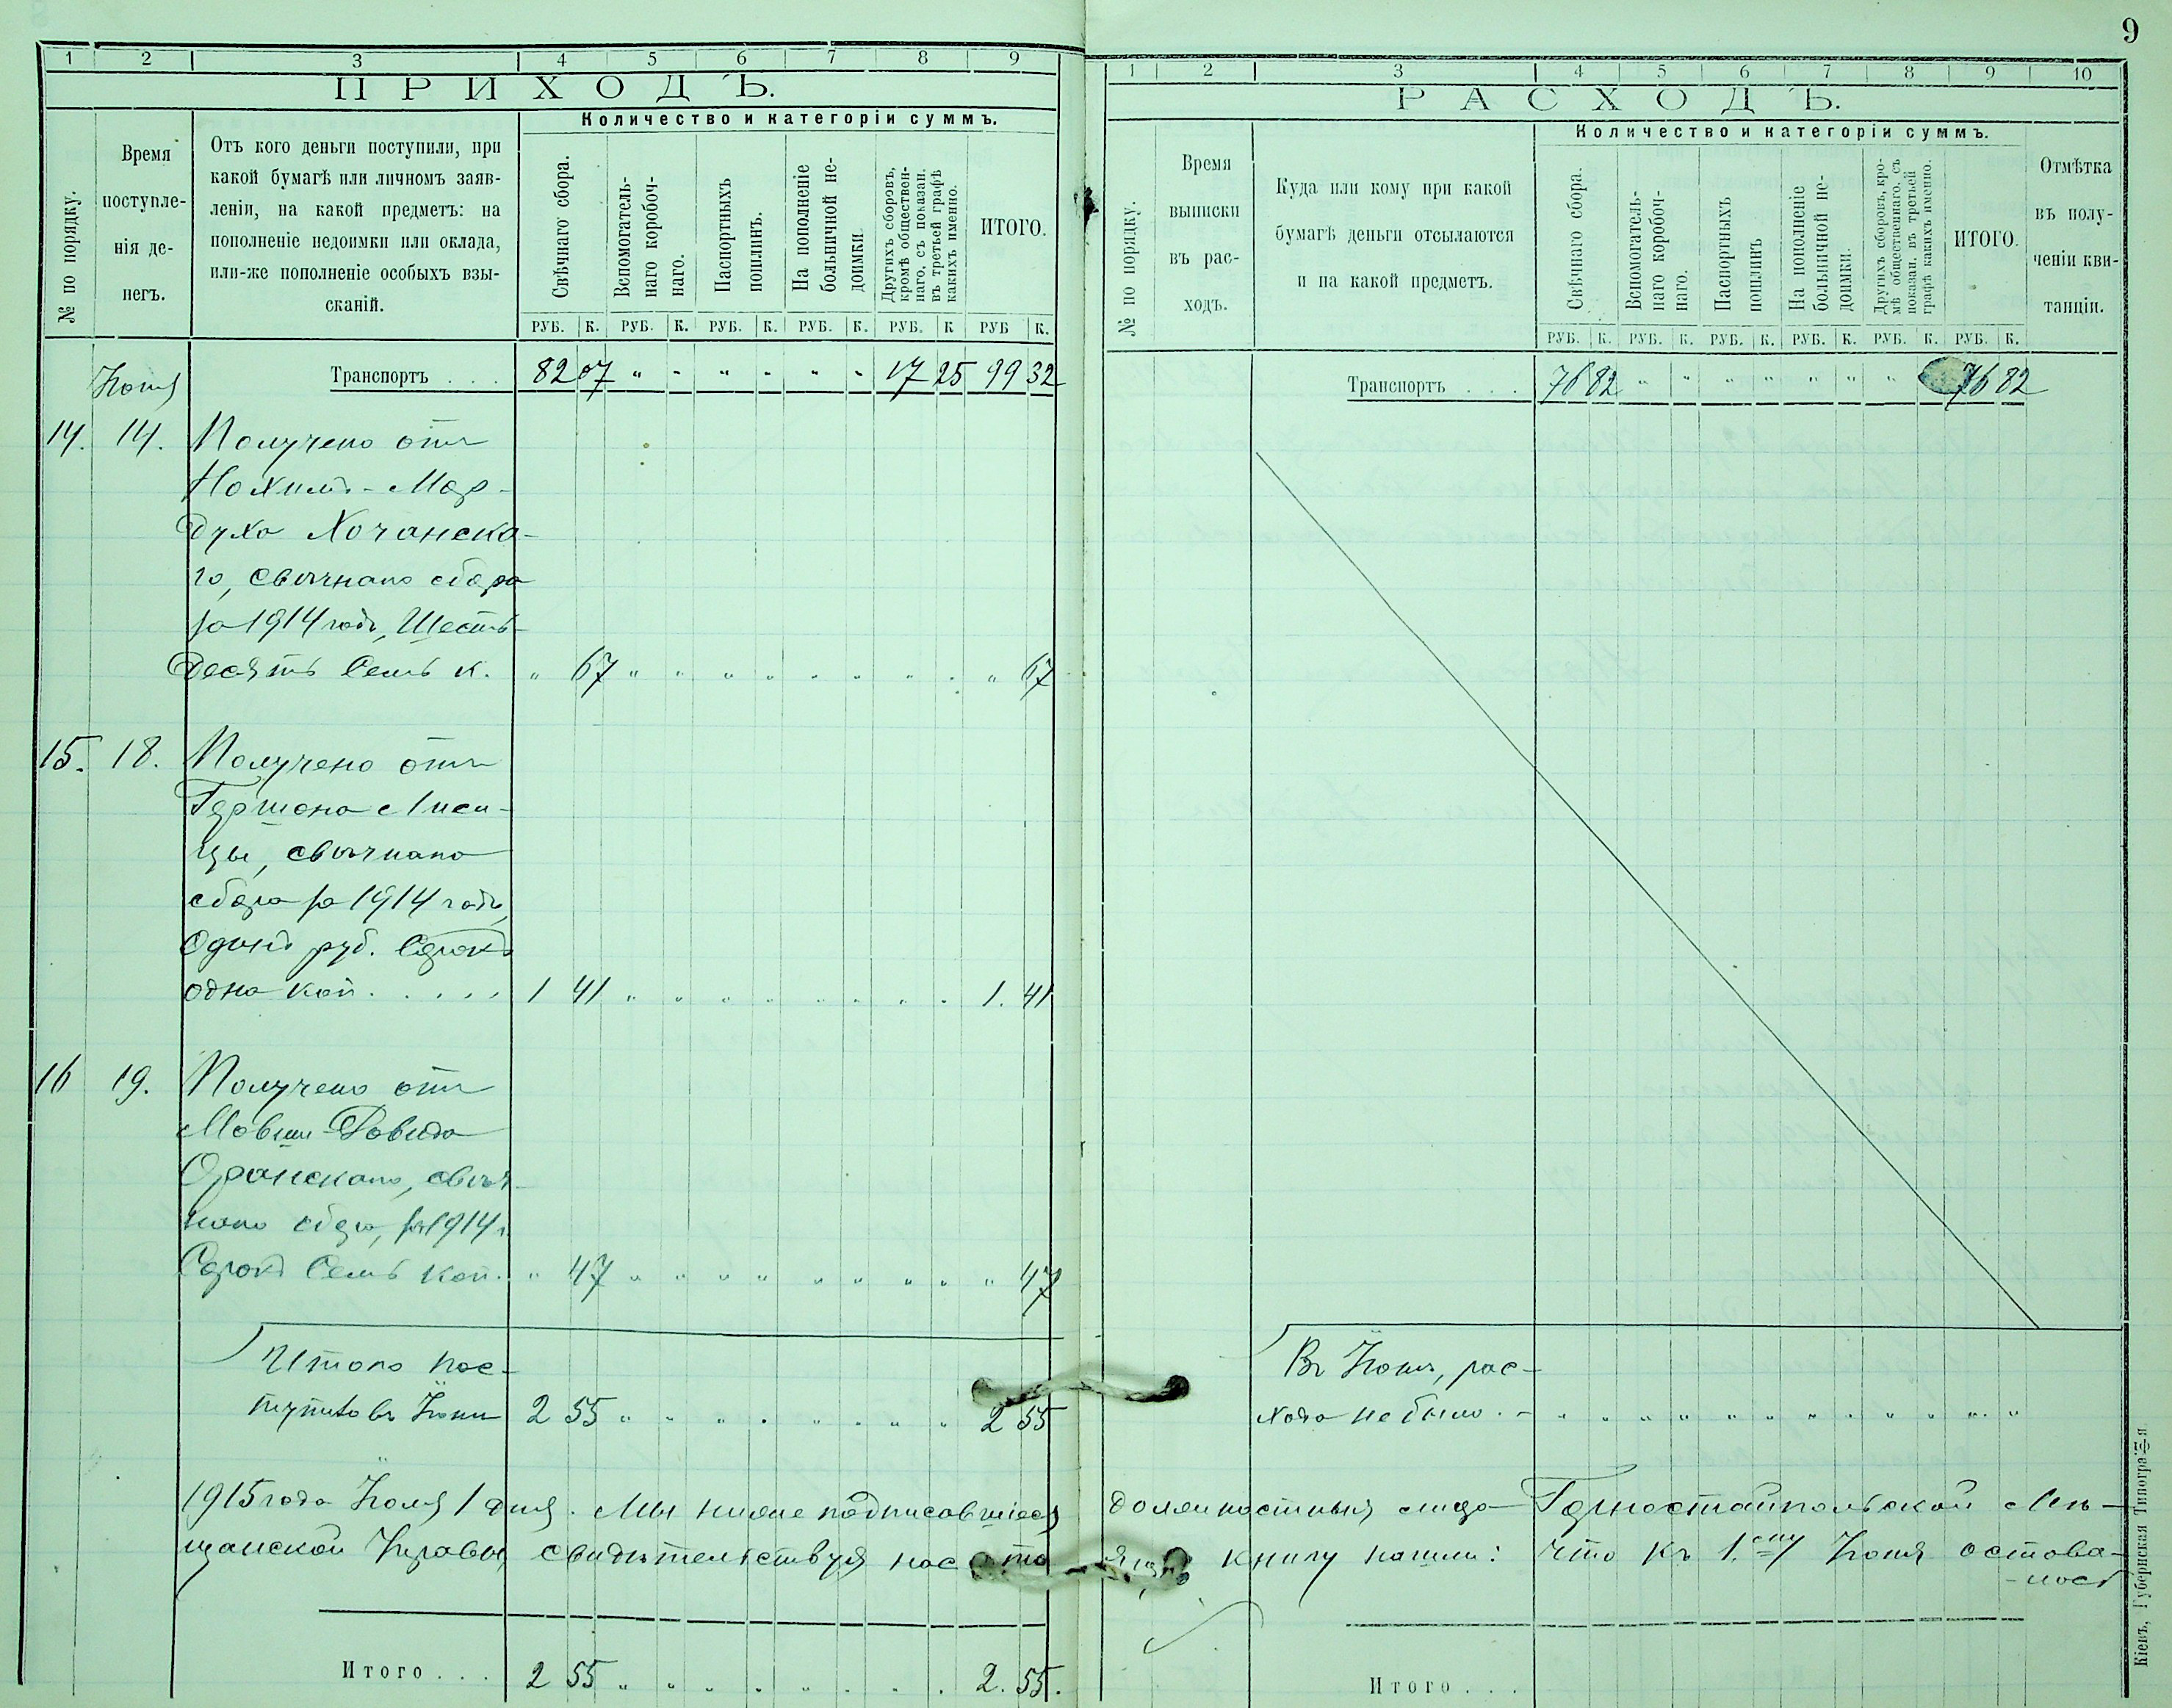 9
1 2 3 4 5 6 7 8 9
ПРИХОДЪ.
№ по порядку.
Время
поступле-
нія де-
негъ.
Отъ кого деньги поступили, при
какой бумагѣ или личномъ заяв-
леніи, на какой предметъ: на
пополненіе недоимки или оклада,
или-же пополненіе особыхъ взы-
сканій.
Количество и категоріи суммъ.
Свѣчнаго сбора.
Вспомогатель-
наго коробоч-
наго.
Паспортныхъ
пошлинъ.
На пополненіе
больничной не-
доимки.
Другихъ сборовъ,
кромѣ обществен-
наго, съ показан.
въ третьей графѣ
какихъ именно.
ИТОГО.
РУБ. К. РУБ. К. РУБ. К. РУБ. К. РУБ. К РУБ К.
Транспортъ . . . 82 07 " - " - - - 17 25 99 32
Іюнь
14. 14. Получено отъ
Нохимъ-Мор-
духа Хочанска-
го, свѣчнаго сбора
за 1914 годъ, Шесть-
десятъ Семь к. " 67 " " " " " " " " " 67
15. 18. Получено отъ
Гершона Лиси-
цы, свѣчнаго
сбора за 1914 годъ,
Одинъ руб. Сорокъ
одна коп. . . . . 1 41 " " " " " " " " 1. 41
16 19. Получено отъ
Мовши-Довида
Оранскаго, свѣч-
наго сбора, за 1914 г.
Сорокъ Семь коп. " 47 " " " " " " " " " 47
Итого пос-
тупило въ Іюнѣ 2 55 " " " " " " " " 2 55
1915 года Іюля 1 дня. Мы ниже подписавшіеся
щанской Управы, свидѣтельствуя насто
Итого . . . 2 55 " " " " " " " " 2. 55.
1 2 3 4 5 6 7 8 9 10
РАСХОДЪ.
№ по порядку.
Время
выписки
въ рас-
ходъ.
Куда или кому при какой
бумагѣ деньги отсылаются
и на какой предметъ.
Количество и категоріи суммъ.
Свѣчнаго сбора.
Вспомогатель-
наго коробоч-
наго.
Паспортныхъ
пошлинъ
На пополненіе
больничной не-
доимки.
Другихъ сборовъ, кро-
мѣ общественнаго, съ
показан. въ третьей
графѣ какихъ именно.
ИТОГО.
Отмѣтка
въ полу-
ченіи кви-
танціи.
РУБ. К. РУБ. К. РУБ. К. РУБ. К. РУБ. К. РУБ. К.
Транспортъ . . . 76 82 " " " " " " " 76 82
Въ Іюнѣ, рас-
хода не было. - " " " " " " " " " " " "
должностныя лица Горностайпольской Мѣ-
ящую книгу нашли: что къ 1.ому Іюля остова-
-лось
Итого . . .
Кіевъ, Губернская Типографія